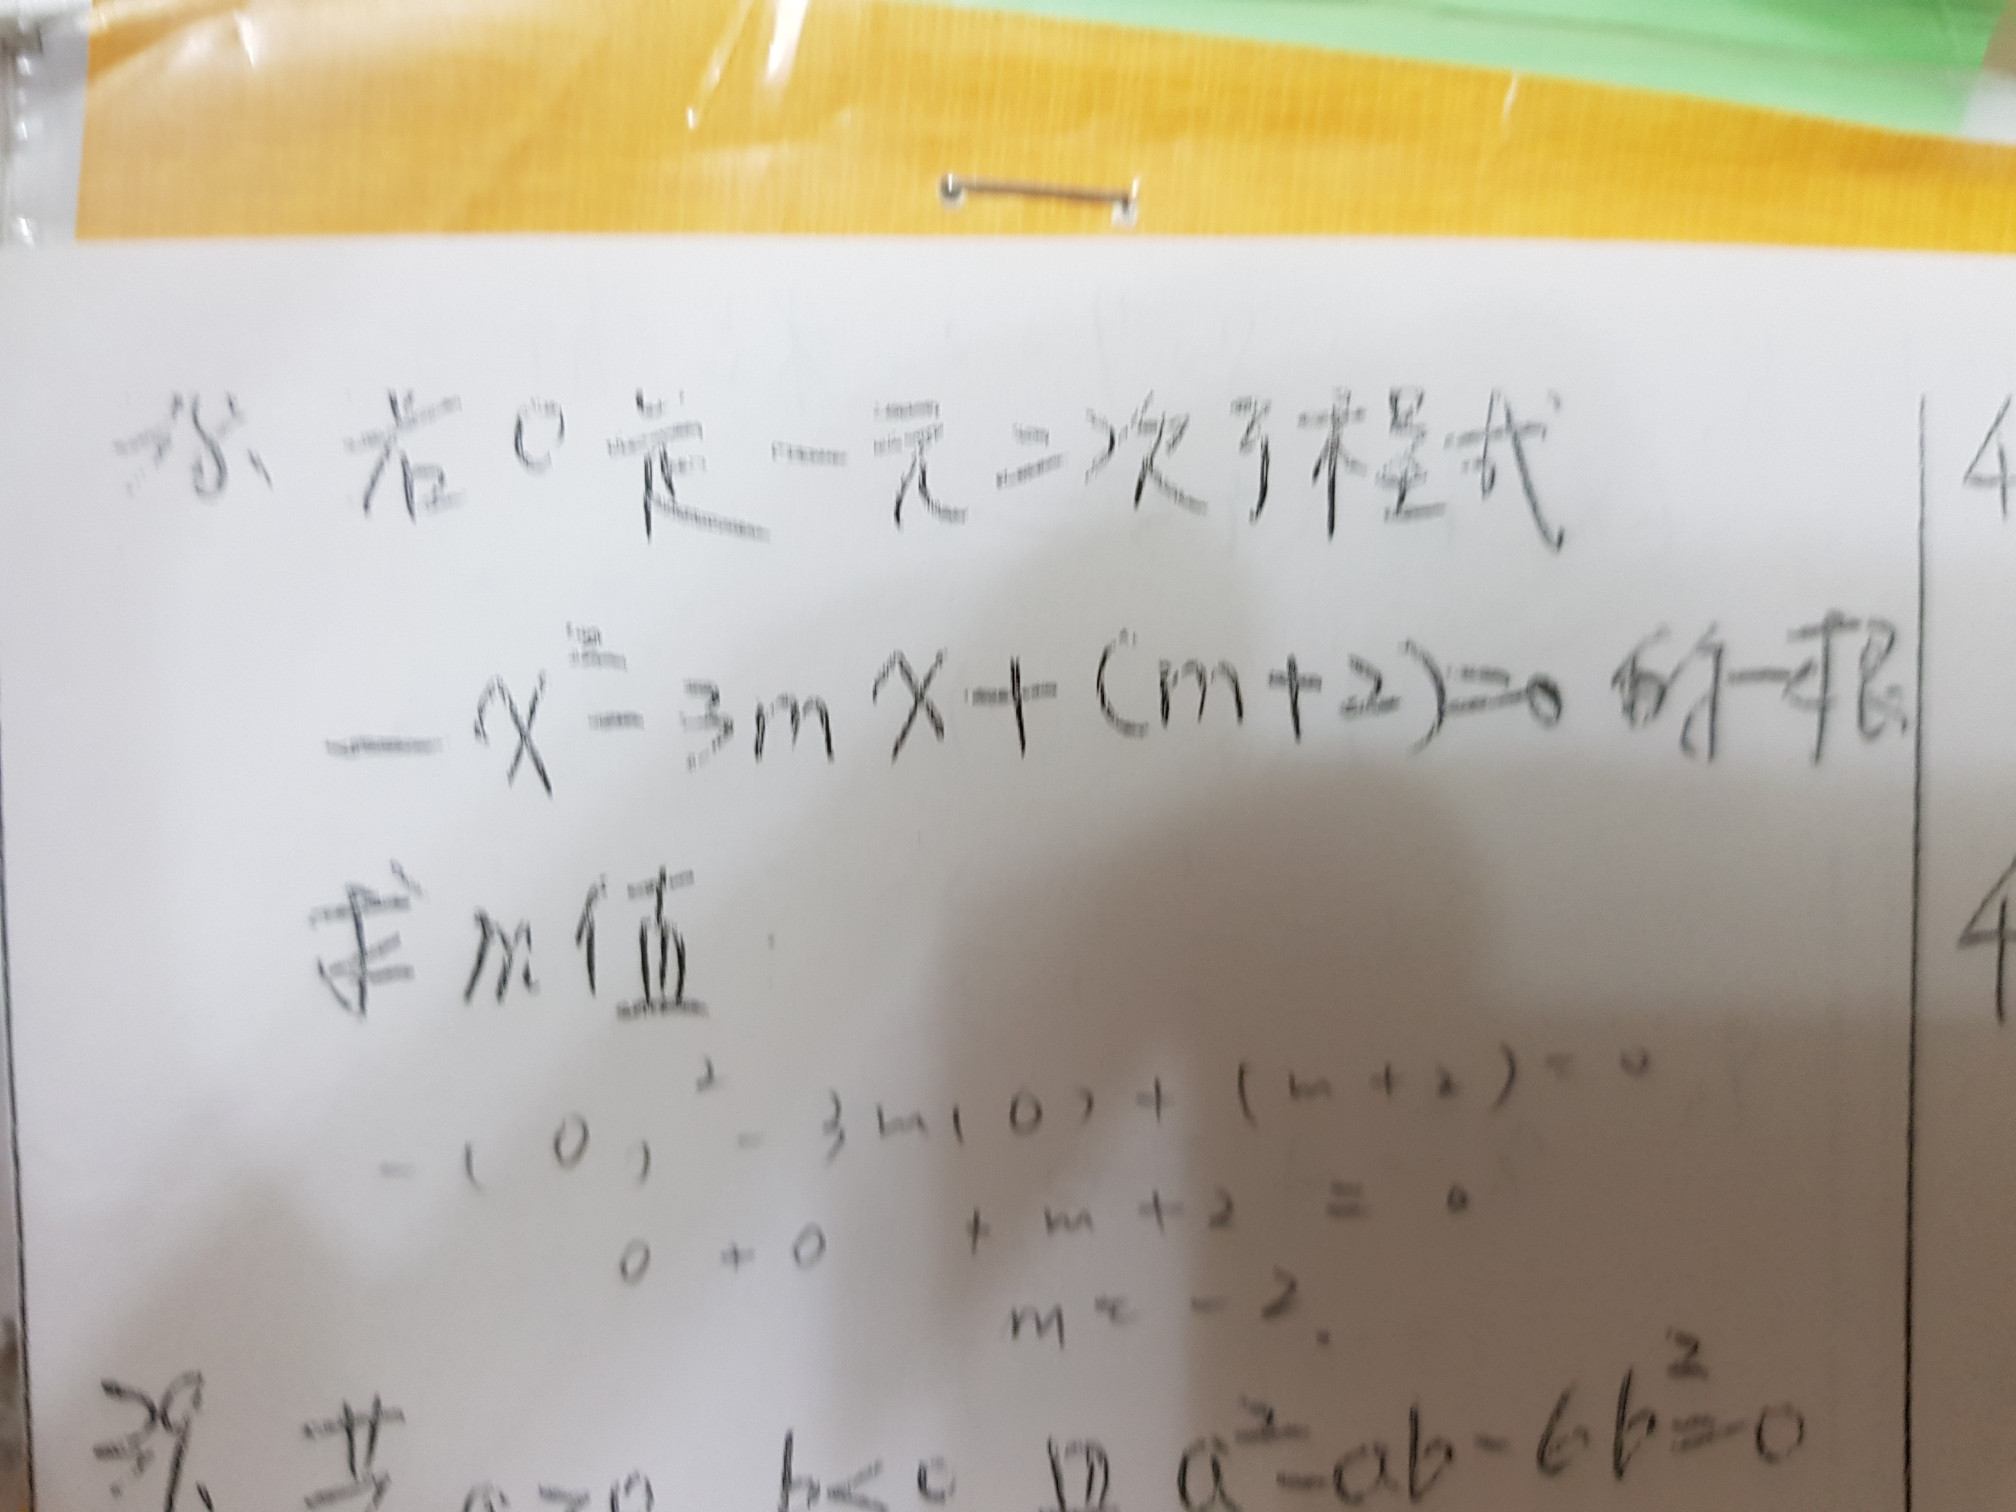 38、若0是一元二次方程式
-x²-3mx+(m+2)=0 的一根
求m值
-(0)²-3m(0)+(m+2)=0
0+0 +m+2=0
m=-2.
39、若a>0 b<0 且a²-ab-6b²=0
4
4